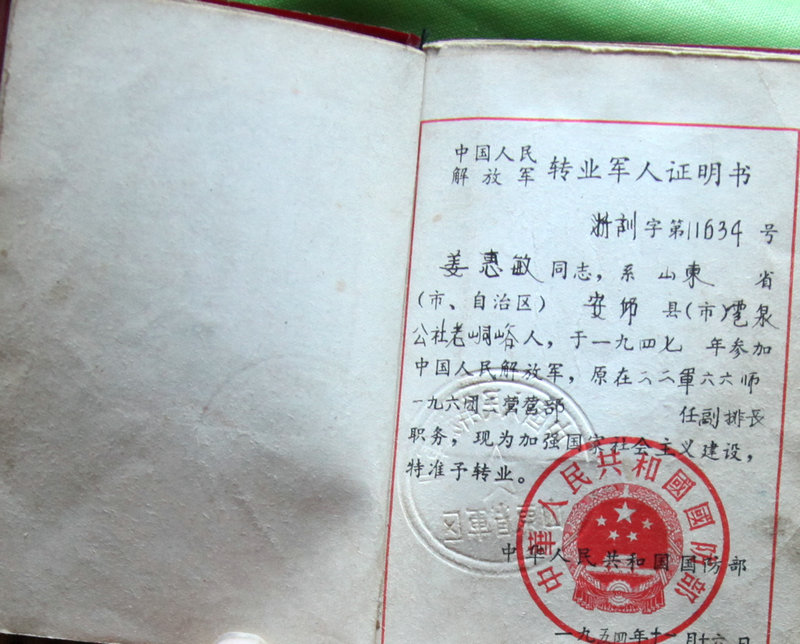 中国人民
解放军 转业军人证明书
字第11634号
姜惠敏同志，系山東省
（市、自治区）安邱县（市）雹泉
公社老峒峪人，于一九四七年参加
中国人民解放军，原在二二軍六六师
一九六团一营营部 任副排長
职务，现为加强国家社会主义建设，
特准予转业。
中华人民共和国国防部
中華人民共和國國防部
一九五四年十一月十六日